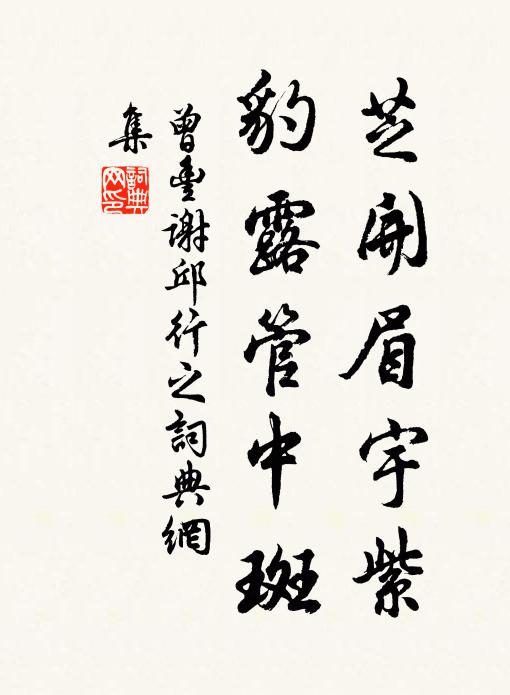 芝開眉宇紫
豹露管中斑
曾豐謝邱行之詞典網
集
詞典
网印